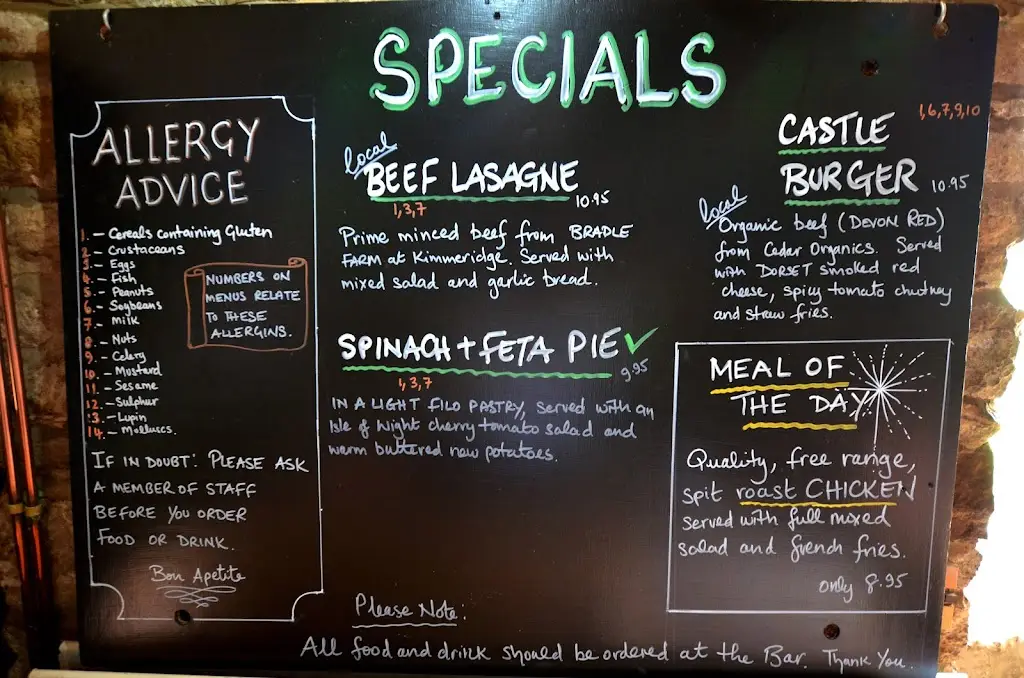 SPECIALS
ALLERGY
ADVICE
1. - Cereals containing Gluten
2. - Crustaceans
3. - Eggs
4. - Fish
5. - Peanuts
6. - Soybeans
7. - Milk
8. - Nuts
9. - Celery
10. - Mustard
11. - Sesame
12. - Sulphur
13. - Lupin
14. - Molluscs.
NUMBERS ON
MENUS RELATE
TO THESE
ALLERGINS.
IF IN DOUBT: PLEASE ASK
A MEMBER OF STAFF
BEFORE YOU ORDER
FOOD OR DRINK.
Bon Apetite
local
BEEF LASAGNE
10.95
1,3,7
Prime minced beef from BRADLE
FARM at Kimmeridge. Served with
mixed salad and garlic bread.
SPINACH + FETA PIE ✓
9.95
1,3,7
IN A LIGHT FILO PASTRY, served with an
Isle of Wight cherry tomato salad and
warm buttered new potatoes.
1,6,7,9,10
CASTLE
BURGER 10.95
local
Organic beef (DEVON RED)
from Cedar Organics. Served
with DORSET smoked red
cheese, spicy tomato chutney
and straw fries.
MEAL OF
THE DAY
Quality, free range,
spit roast CHICKEN
served with full mixed
salad and french fries.
only 8.95
Please Note:
All food and drink should be ordered at the Bar. Thank You.